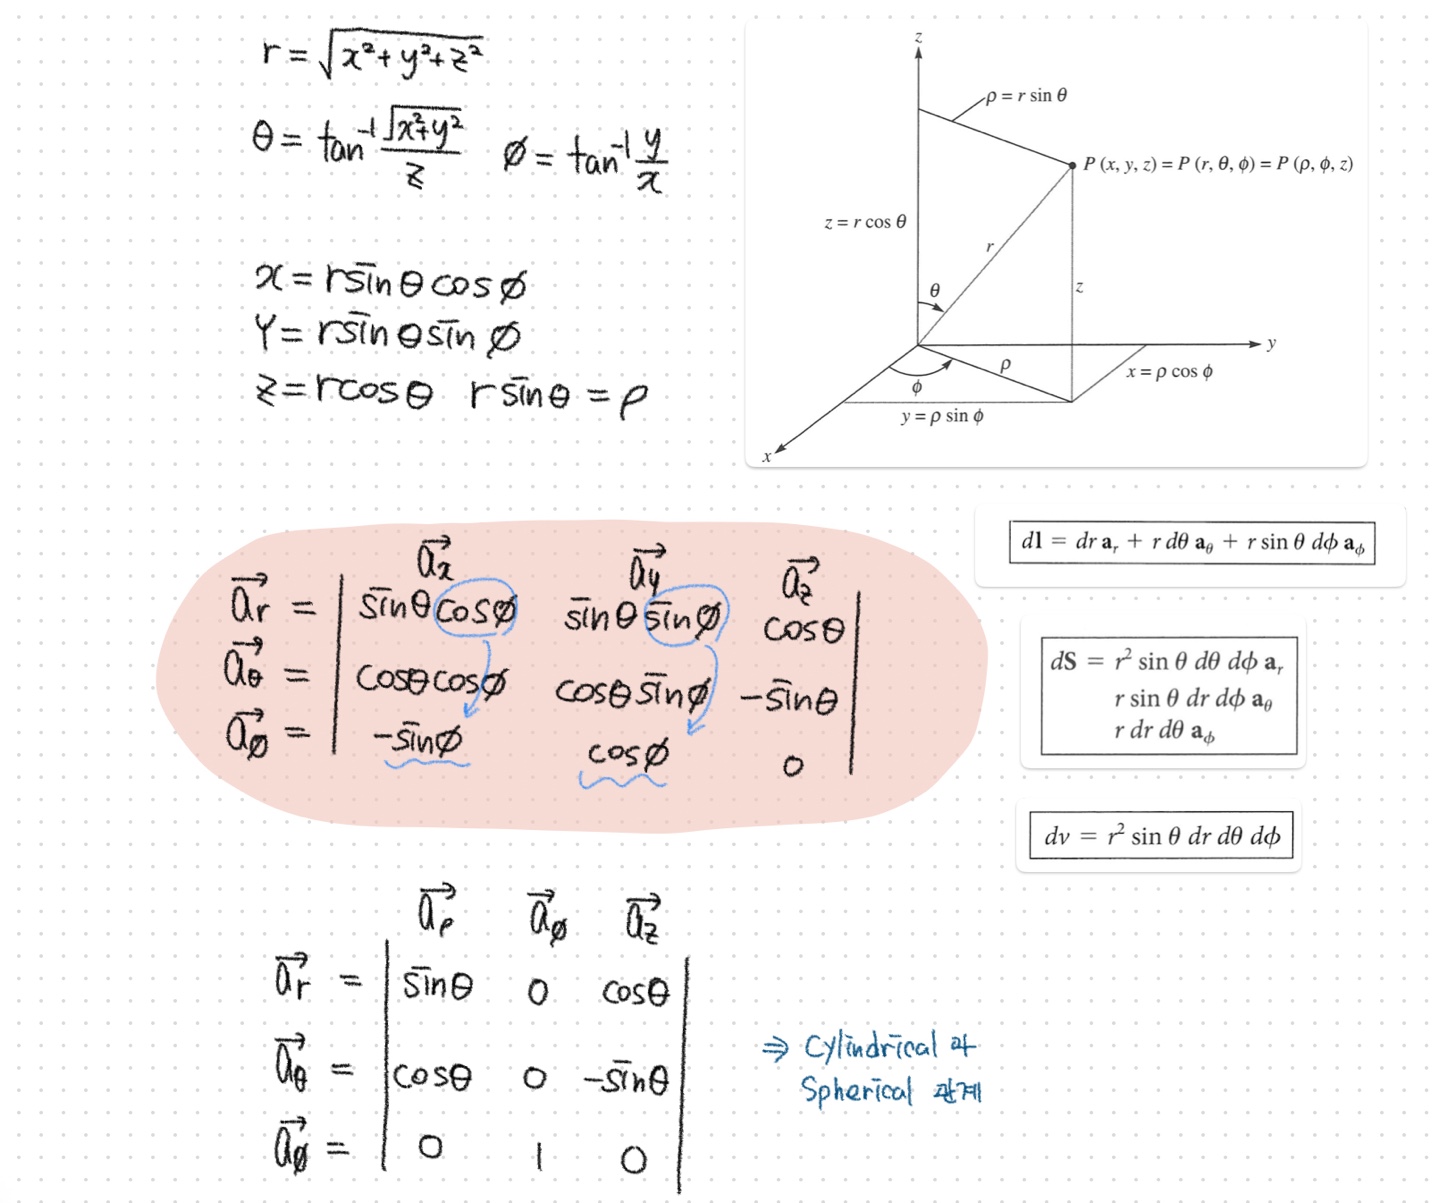 r = √x²+y²+z²
θ = tan⁻¹ √x²+y² / z   ϕ = tan⁻¹ y/x
x = r sinθ cosϕ
Y = r sinθ sinϕ
z = r cosθ   r sinθ = ρ
z
ρ = r sin θ
P (x, y, z) = P (r, θ, ϕ) = P (ρ, ϕ, z)
z = r cos θ
r
θ
z
y
ρ
x = ρ cos ϕ
ϕ
y = ρ sin ϕ
x
a⃗x a⃗y a⃗z
a⃗r = | sinθ cosϕ sinθ sinϕ cosθ |
a⃗θ = | cosθ cosϕ cosθ sinϕ -sinθ |
a⃗ϕ = | -sinϕ cosϕ 0 |
dl = dr aᵣ + r dθ a_θ + r sin θ dϕ a_ϕ
dS = r² sin θ dθ dϕ aᵣ
r sin θ dr dϕ a_θ
r dr dθ a_ϕ
dv = r² sin θ dr dθ dϕ
a⃗ρ a⃗ϕ a⃗z
a⃗r = | sinθ 0 cosθ |
a⃗θ = | cosθ 0 -sinθ |
a⃗ϕ = | 0 1 0 |
⇒ Cylindrical 과
Spherical 관계